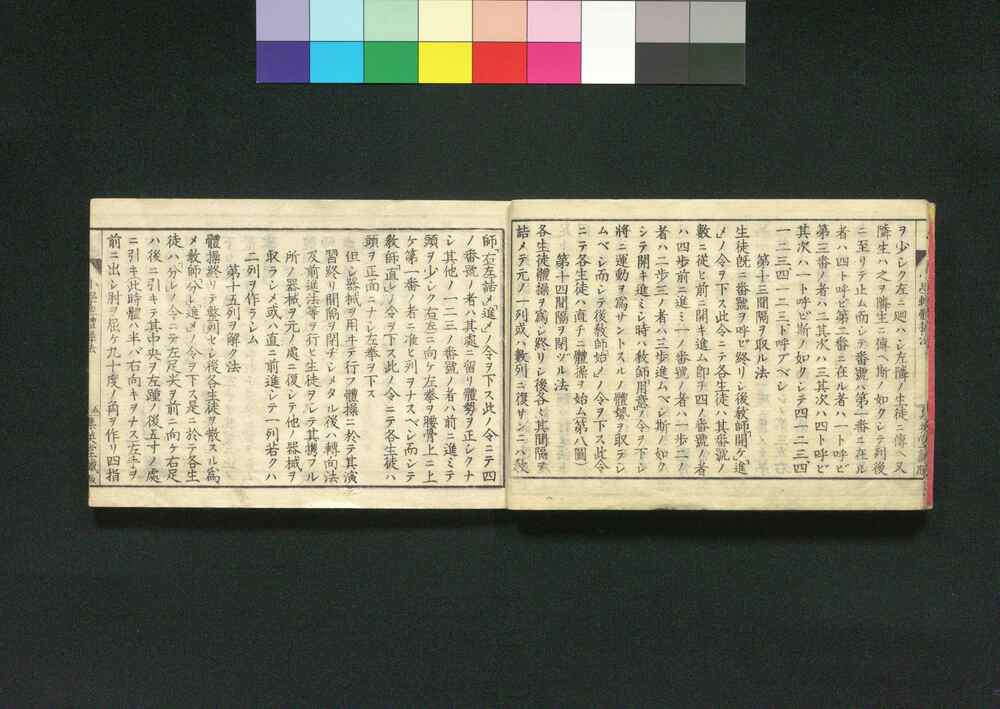 ヲ少シク左ニ廻ハシ左隣ノ生徒ニ傳ヘ又
隣生ハ之ヲ隣生ニ傳ヘ斯ノ如クシテ列後
ニ至リテ止ム而シテ番號ハ第一番ニ在ル
者ハ四ト呼ビ第二番ニ在ル者ハ一ト呼ビ
第三番ノ者ハ二其次ハ三其次ハ四ト呼ビ
其次ハ一ト呼ビ斯ノ如クシテ四一二三四
一二三四一二三ト呼ブベシ
第十三間隔ヲ取ル法
生徒旣ニ番號ヲ呼ビ終リシ後敎師「開ケ」「進
メ」ノ令ヲ下ス此令ニテ各生徒ハ其番號ノ
數ニ從ヒ前ニ開キ進ム卽チ四ノ番號ノ者
ハ四步前ニ進ミ一ノ番號ノ者ハ一步二ノ
者ハ二步三ノ者ハ三步進ムベシ斯ノ如ク
シテ開キ進ミシ時ハ敎師「用意」ノ令ヲ下シ
將ニ運動ヲ爲サントスルノ體勢ヲ取ラシ
ムベシ而シテ後敎師「始メ」ノ令ヲ下ス此令
ニテ各生徒ハ直チニ體操ヲ始ム(第八圖)
第十四間隔ヲ閉ヅル法
各生徒體操ヲ爲シ終リシ後各〻其間隔ヲ
詰メテ元ノ一列或ハ數列ニ復サンニハ敎
師「右左詰メ」「進メ」ノ令ヲ下ス此ノ令ニテ四
ノ番號ノ者ハ其處ニ留リ體勢ヲ正シクナ
シ其他ノ一二三ノ番號ノ者ハ前ニ進ミテ
頭ヲ少シク右左ニ向ケ左拳ヲ腰骨上ニ上
ケ第一番ノ者ニ准ヒ列ヲナスベシ而シテ
敎師「直レ」ノ令ヲ下ス此ノ令ニテ各生徒ハ
頭ヲ正面ニナシ左拳ヲ下ス
但シ器械ヲ用ヰテ行フ體操ニ於テ其演
習終リ間隔ヲ閉ヂシメタル後ハ轉向法
及前進法等ヲ行ヒ生徒ヲシテ其携フル
所ノ器械ヲ元ノ處ニ復シテ他ノ器械ヲ
取ラシメ或ハ直ニ前進シテ一列若クハ
二列ヲ作ラシム
第十五列ヲ解ク法
體操終リテ整列セシ後各生徒ヲ散スル爲
メ敎師「分レ」「進メ」ノ令ヲ下ス是ニ於テ各生
徒ハ分レノ令ニテ左足尖ヲ前ニ向ケ右足
ハ後ニ引キテ其中央ヲ左踵ノ後五寸ノ處
ニ引キ此時體ハ半バ右向キヲナス左手ヲ
前ニ出シ肘ヲ屈ケ九十度ノ角ヲ作リ四指